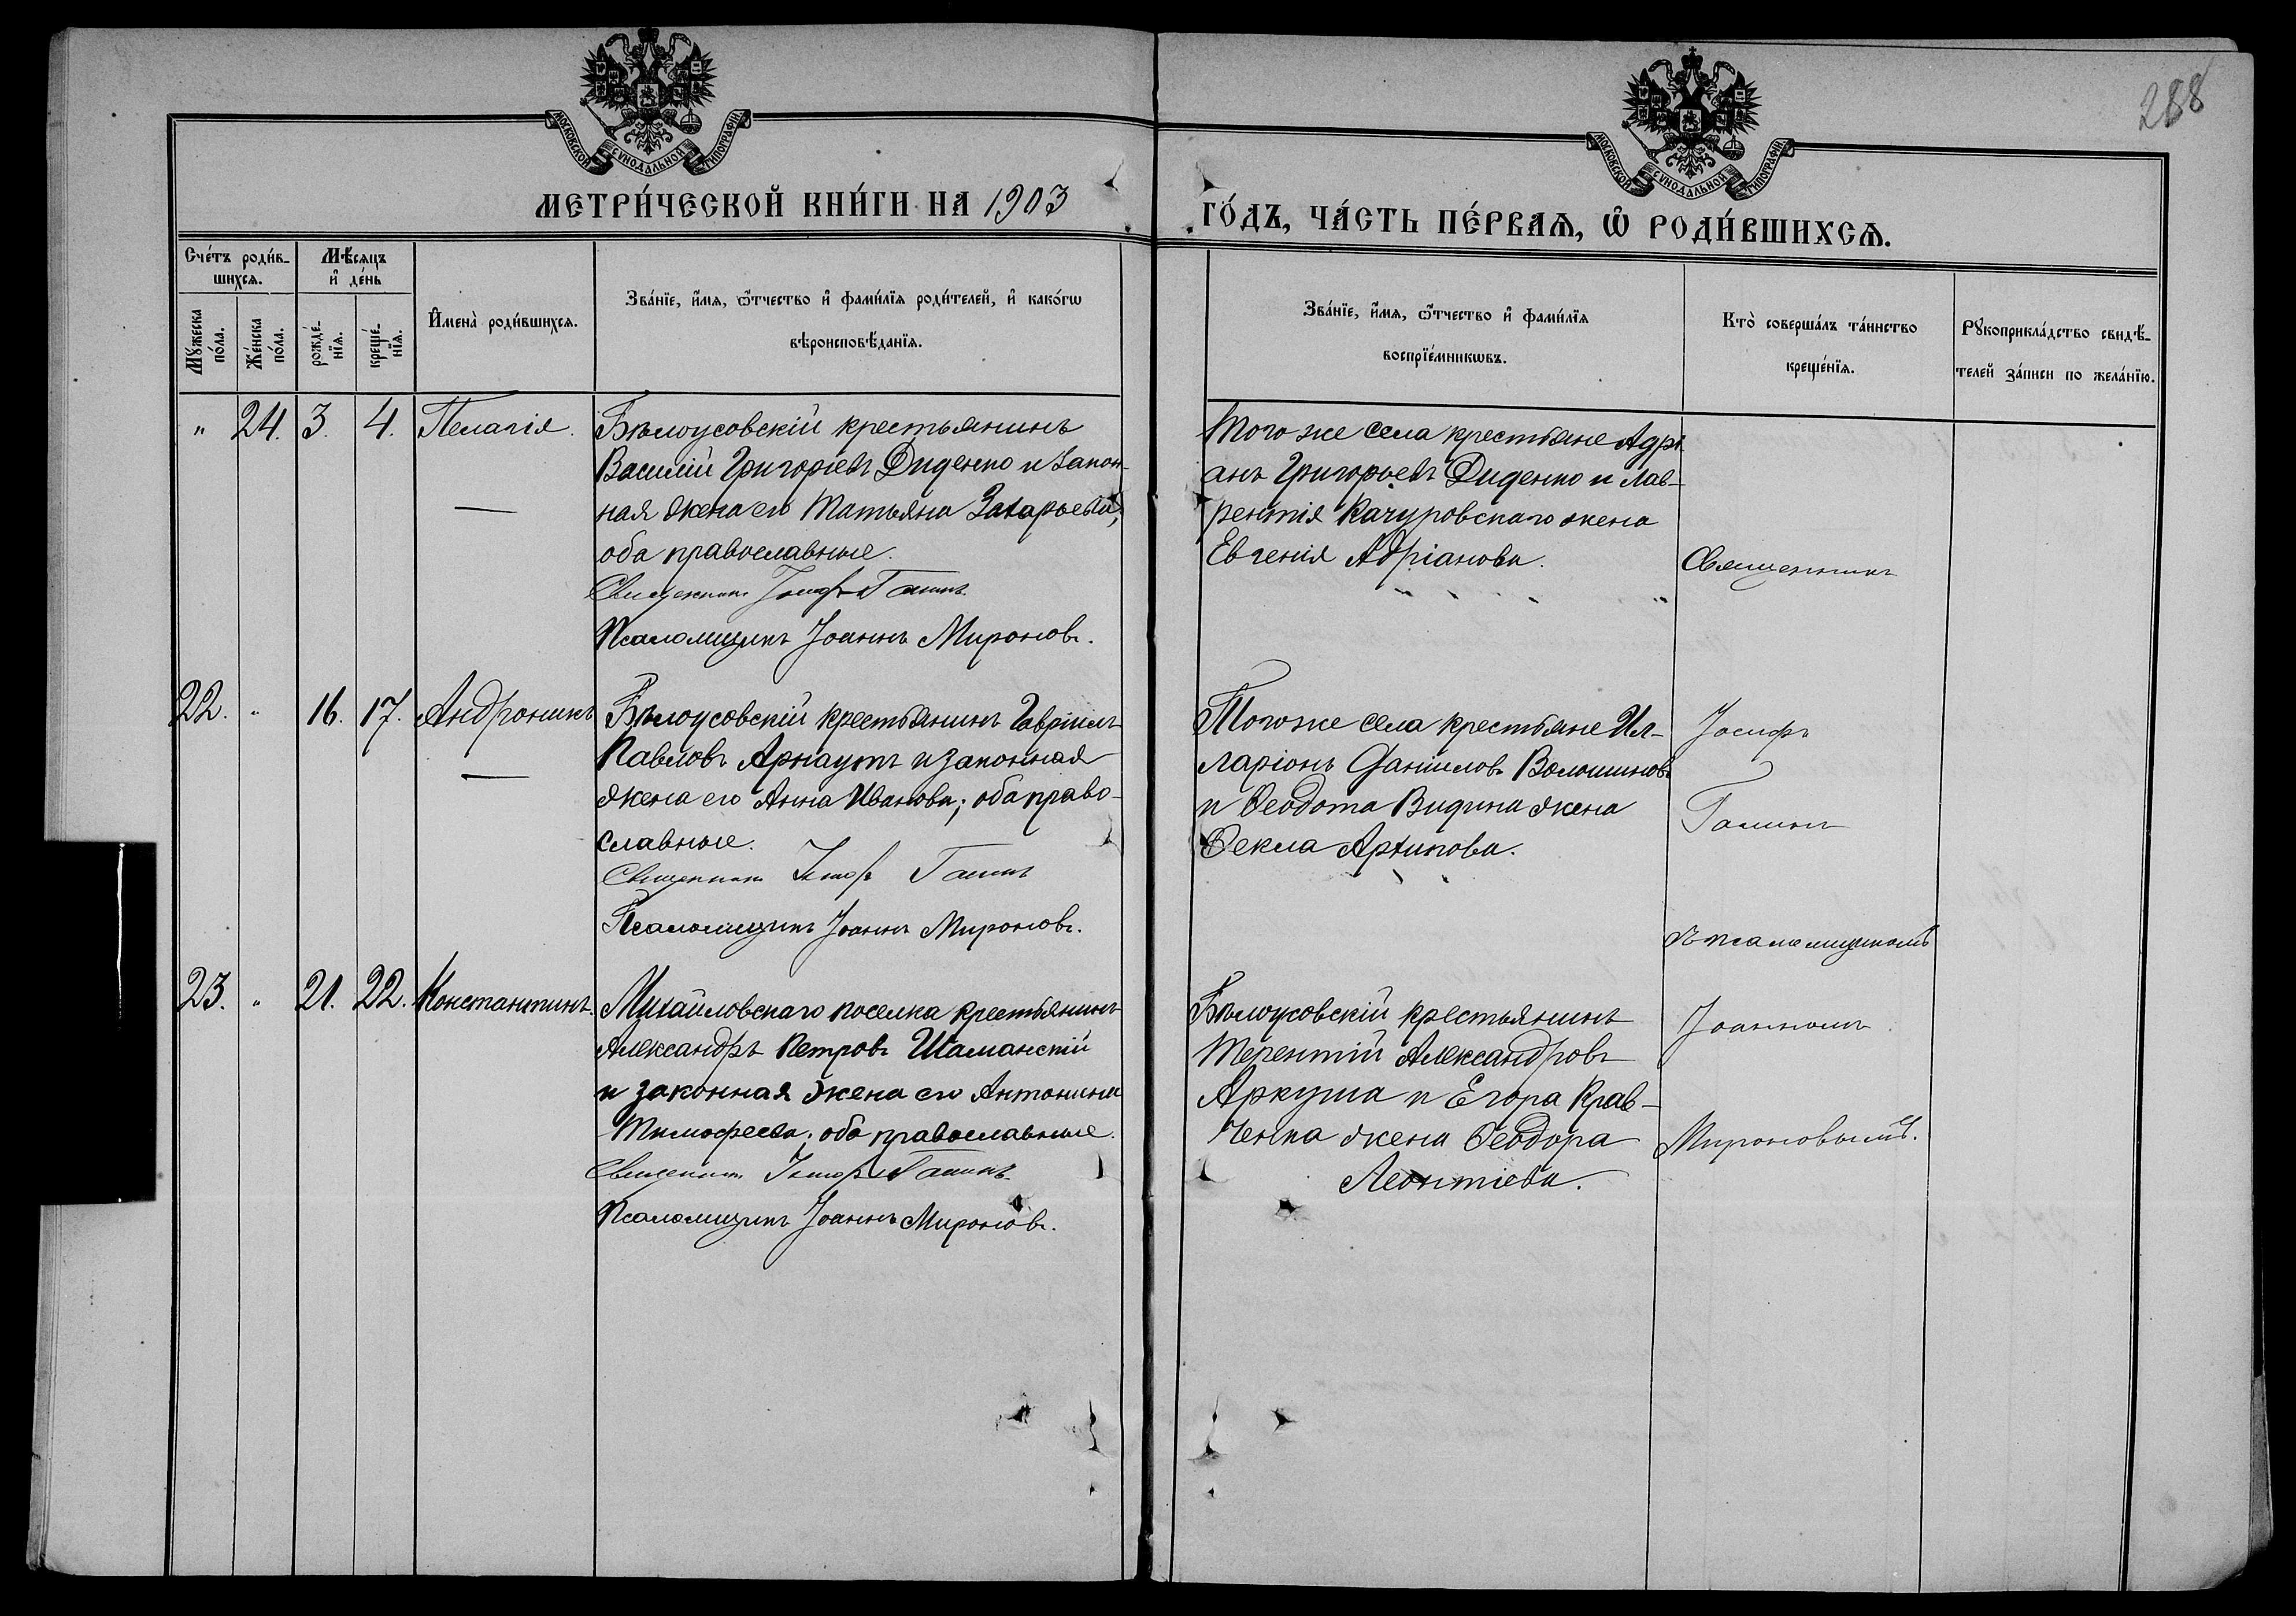 288
МОСКОВСКОЙ СѴНОДАЛЬНОЙ ТИПОГРАФІИ
МОСКОВСКОЙ СѴНОДАЛЬНОЙ ТИПОГРАФІИ
МЕТРИ́ЧЕСКОЙ КНИ́ГИ НА 1903
ГО́ДЪ, ЧА́СТЬ ПЕ́РВАѦ, Ѡ҆ РОДИ́ВШИХСѦ.
Сче́тъ роди́в-
шихсѧ.
Мѣ́сѧцъ
и҆ де́нь
Мꙋ́жеска
по́ла.
Же́нска
по́ла.
рожде́-
нїѧ.
креще́-
нїѧ.
И҆мена̀ роди́вшихсѧ.
Зва́нїе, и҆́мѧ, ѻ҆́тчество и҆ фами́лїѧ роди́телей, и҆ како́гѡ
вѣроисповѣ́данїѧ.
Зва́нїе, и҆́мѧ, ѻ҆́тчество и҆ фами́лїѧ
воспрїе́мникѡвъ.
Кто̀ соверша́лъ та́инство
креще́нїѧ.
Рꙋкоприкла́дство свидѣ́-
телей за́писи по жела́нїю.
" 24. 3. 4. Пелагія.
Бѣлоусовскій крестьянинъ
Василій Григорьевъ Диденко и закон-
ная жена его Татьяна Захарьева,
оба православные.
Священникъ Іосифъ
Псаломщикъ Іоаннъ Мироновъ.
Того же села крестьяне Адрі
анъ Григорьевъ Диденко и Лав-
рентія Качуровскаго жена
Евгенія Адріанова.
Священникъ
22. " 16. 17. Андроникъ
Бѣлоусовскій крестьянинъ Гавріилъ
Павловъ Арнаутъ и законная
жена его Анна Иванова; оба право-
славные.
Священникъ Іосифъ
Псаломщикъ Іоаннъ Мироновъ.
Того же села крестьяне Ил-
ларіонъ Даниловъ Волошиновъ
и Ѳеодота Видина жена
Ѳекла Архипова.
Іосифъ
съ псаломщикомъ
23. " 21. 22. Константинъ.
Михайловскаго поселка крестьянинъ
Александръ Петровъ Шаманскій
и законная жена его Антонина
Тимофеева; оба православные.
Священникъ Іосифъ
Псаломщикъ Іоаннъ Мироновъ.
Бѣлоусовскій крестьянинъ
Терентій Александровъ
Аркуша и Егора Крав-
ченка жена Ѳеодора
Леонтіева.
Іоанномъ
Мироновымъ.